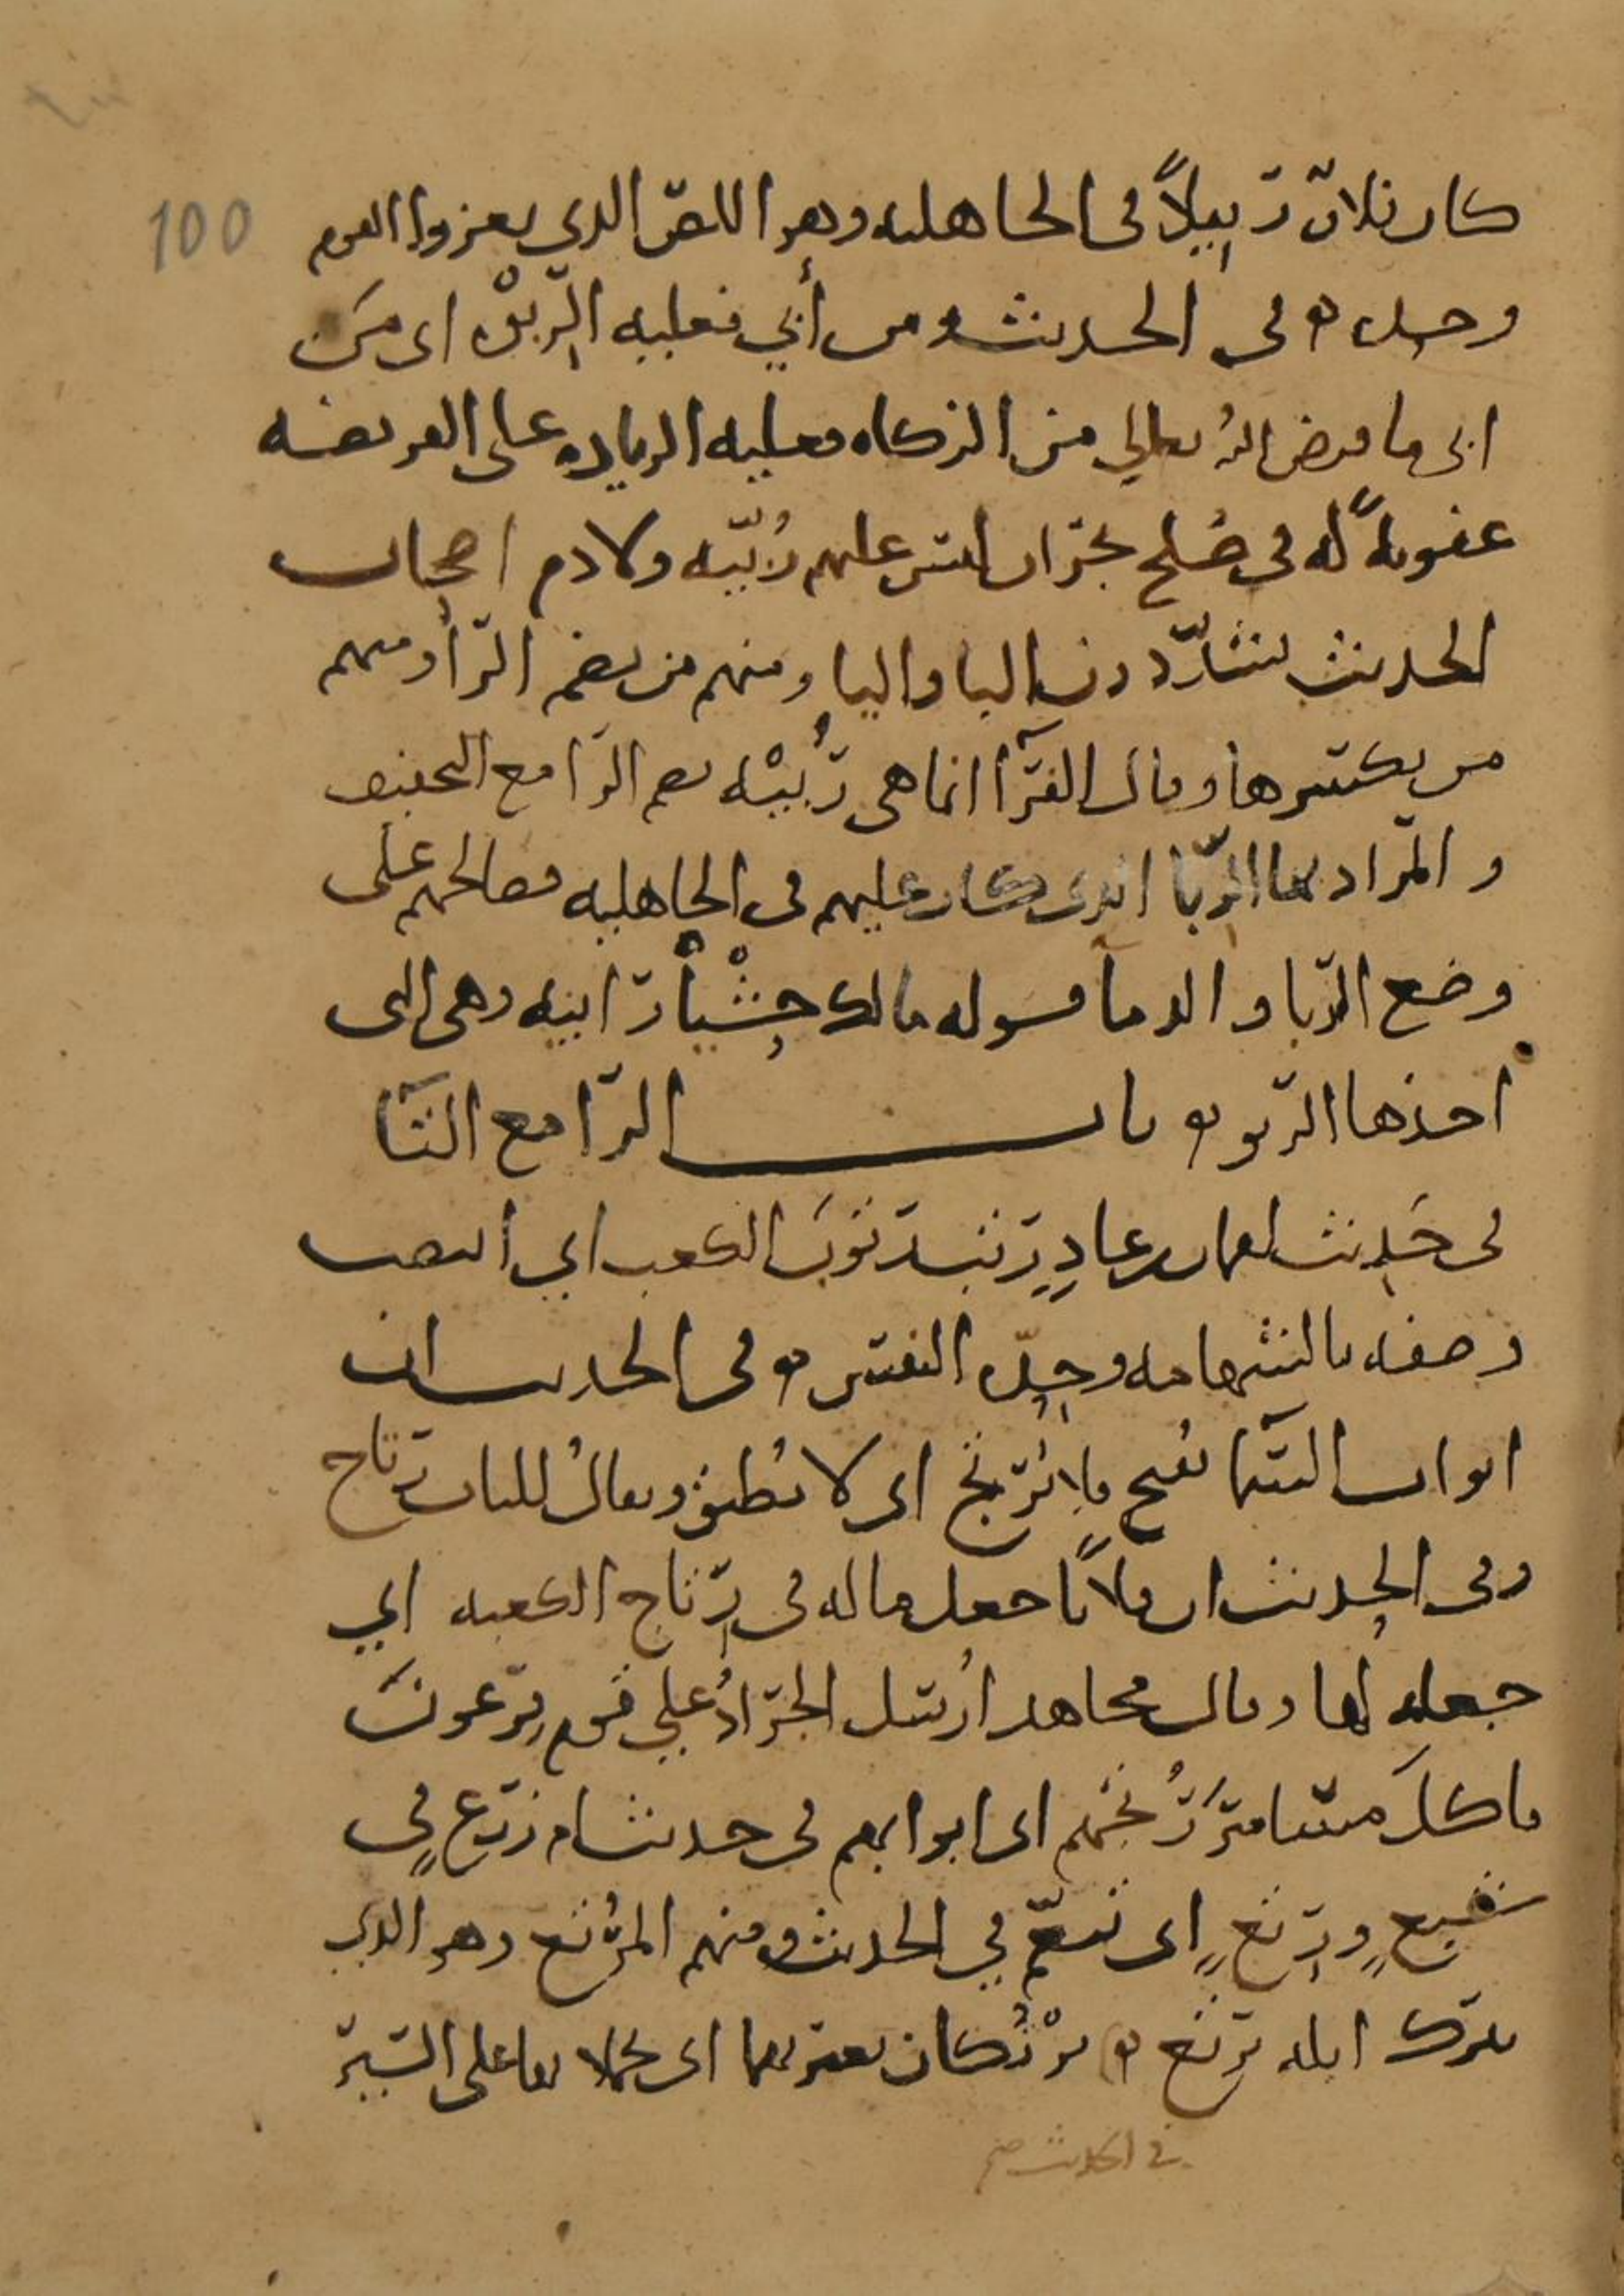 100
كان فلانٌ رَبِيلًا في الجاهلية وهو اللصّ الذي يغزوا القوم
وحده ه في الحديث ومن أبي فعليه الرِّبْوه اي من
ابى ما فرض الله تعالي من الزكاه فعليه الزياده على الفريضه
عقوبةً له في صُلح نجران ليس عليهم رُبّيّه ولا دم اصحاب
الحديث يشدّدون البا واليا ومنهم من يضم الرّا ومنهم
من يكسرها وقال الفرّآ انما هى رُبْيَه بضم الرّا مع التخفيف
والمراد بها الرِّبا الذى كان عليهم في الجاهليه فصالحهم على
وضع الرّبا والدمآ قوله مالك حَشْيَا رَابيه وهى التى
اخذها الرّبو ه باب الرّا مع التّا
في حَدِيث لقمان بن عادٍ رَتَب رُتُوبَ الكعب اي انتصب
وصفه بالشهامه وحِدّه النفس ه في الحديث ان
ابواب السّمآ تفتح فلا تُرْتَجُ اى لا تُطبق ويقالُ للباب رتاج
وفى الحديث ان فلانًا جعل ماله فى رِتاج الكعبه اي
جعله لها وقال مجاهد أُرسل الجرادُ علي قوم فرعونَ
فاكلَ مسامير رُتُجهم اى ابوابهم في حديث ام زرع في
شبعٍ ورتعٍ اى تنعّم في الحديث ومنهم المُرْتع وهو الذي
يترك ابله ترتع ه يَرْتُكان بعيريهما اى يحملانهما على السّير
في الحديث صح